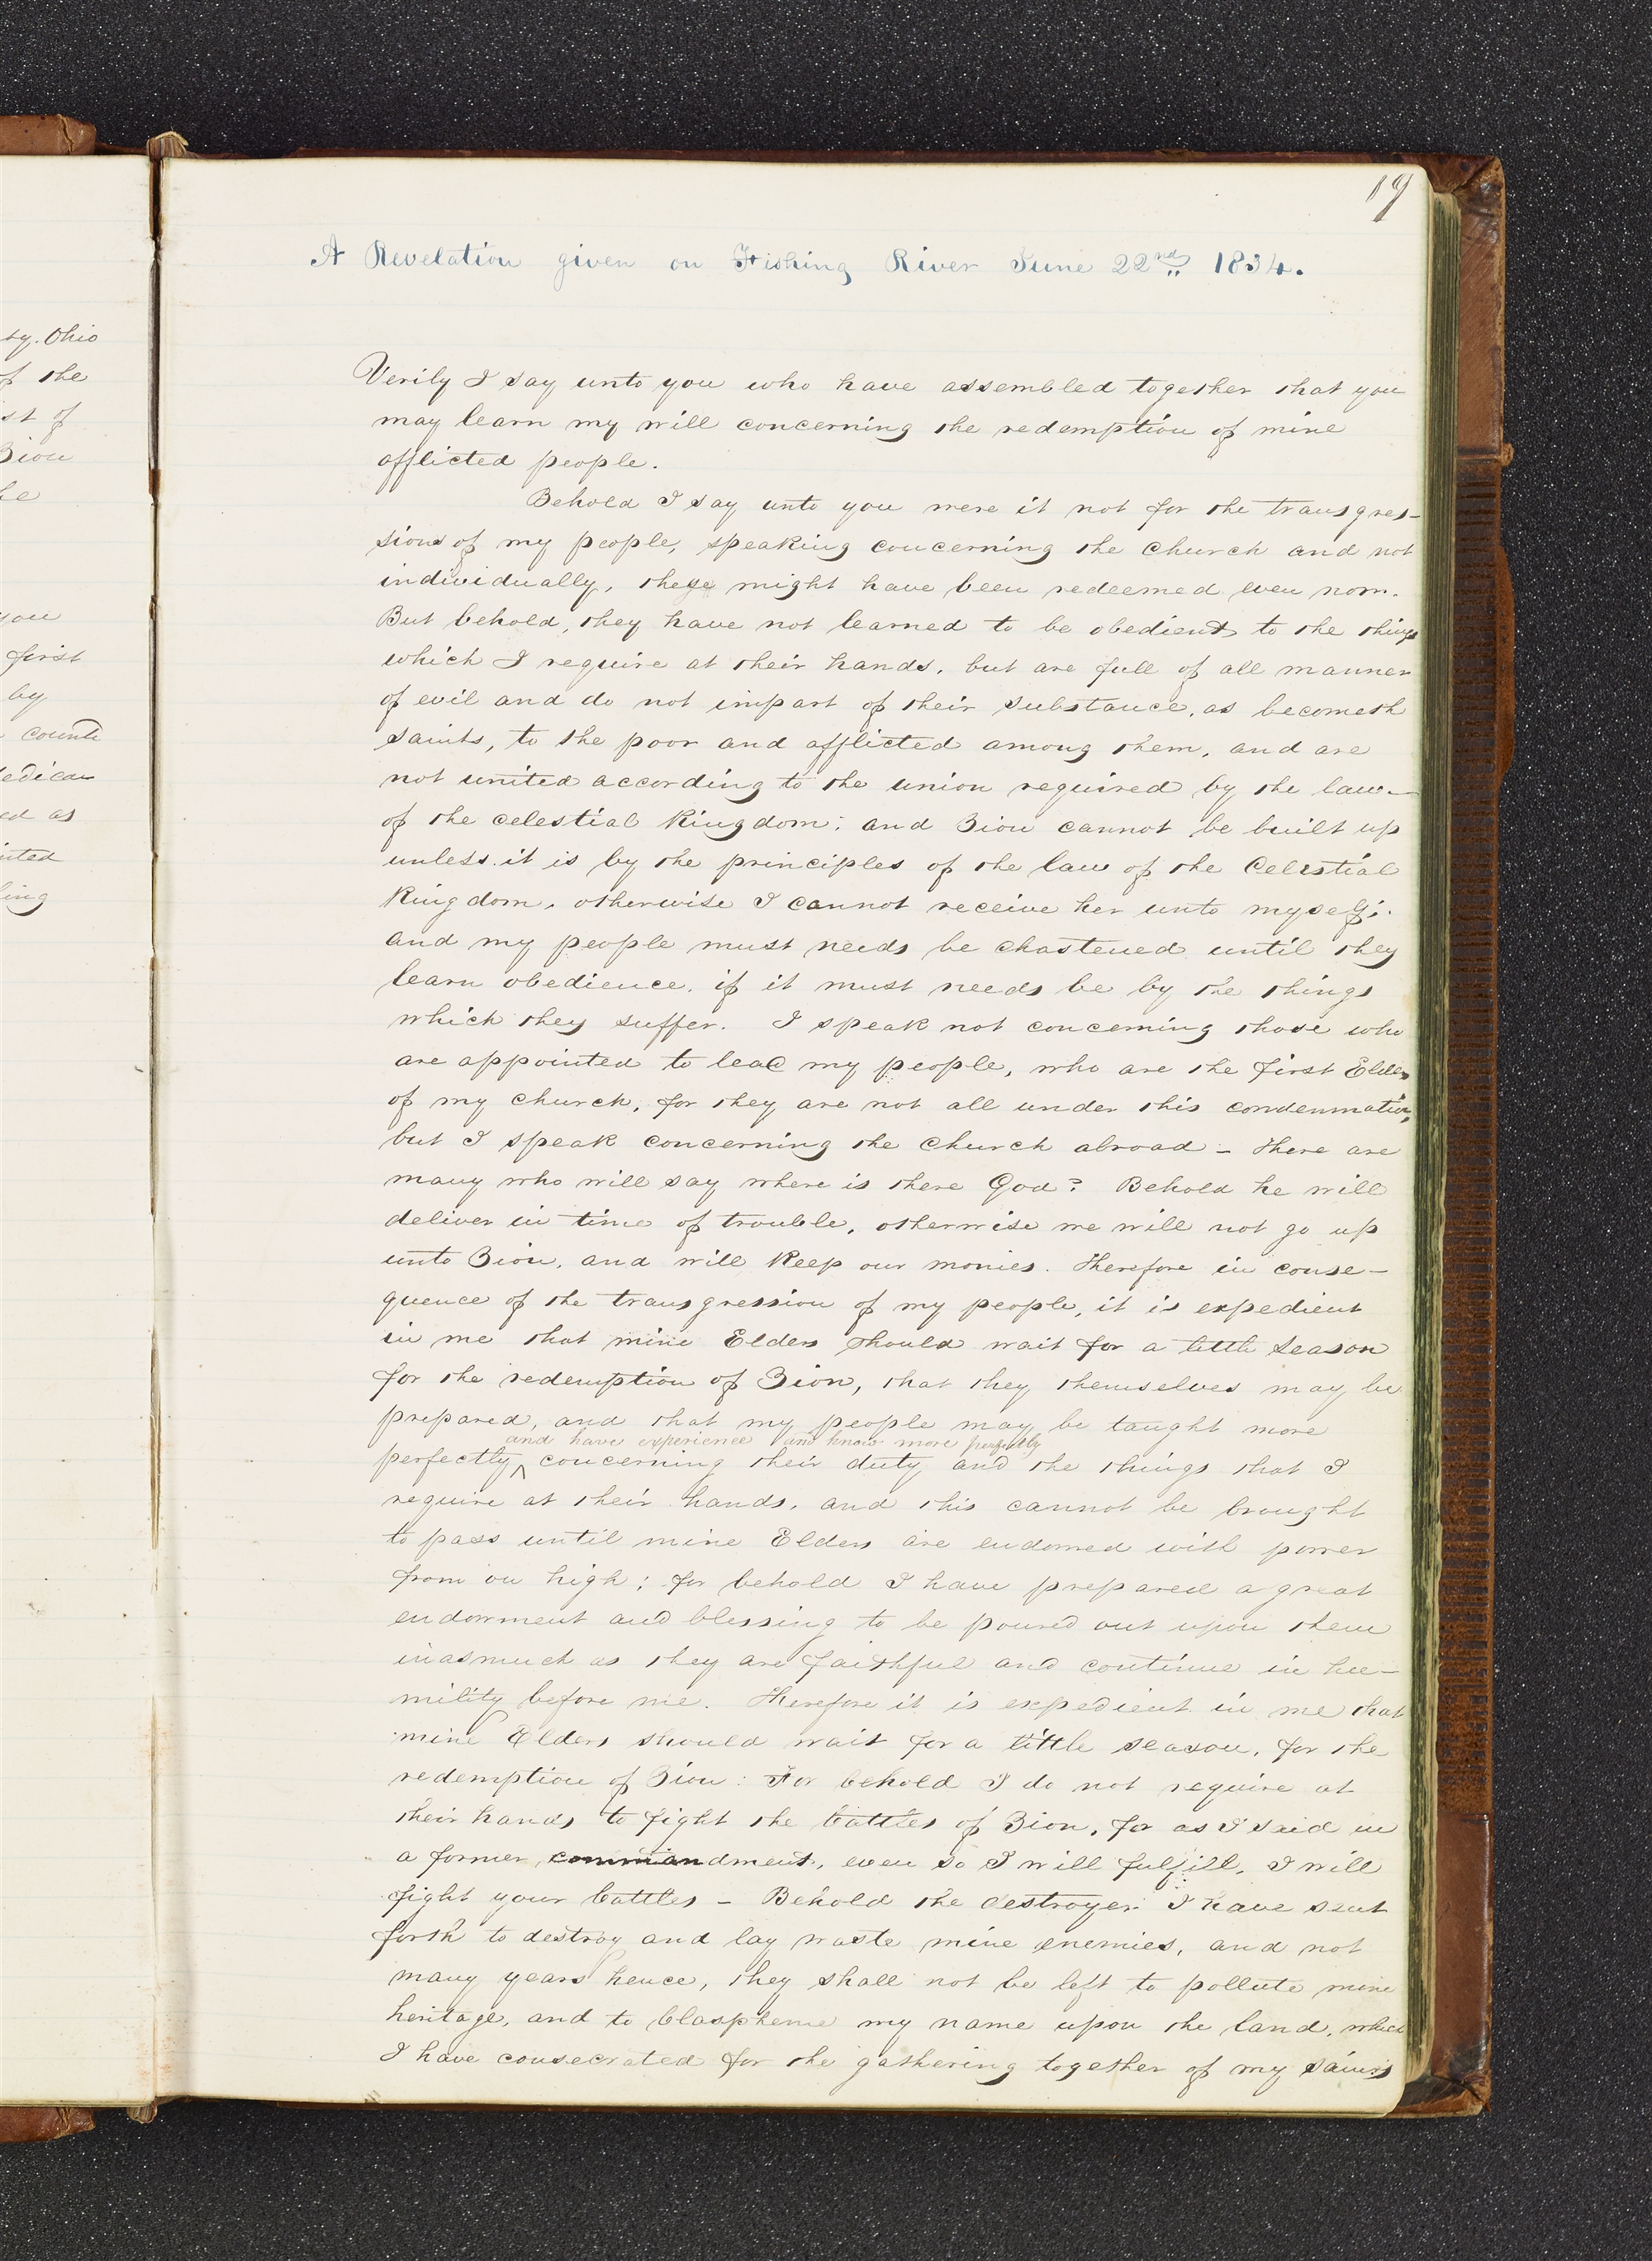 19
A Revelation given on Fishing River June 22nd 1834.
Verily I say unto you who have assembled together that you
may learn my will concerning the redemption of mine
afflicted people.
Behold I say unto you were it not for the transgres-
sions of my people, speaking concerning the church and not
individually, these might have been redeemed even now.
But behold, they have not learned to be obedient to the things
which I require at their hands, but are full of all manner
of evil and do not impart of their substance, as becometh
saints, to the poor and afflicted among them, and are
not united according to the union required by the law
of the celestial Kingdom; and Zion cannot be built up
unless it is by the principles of the law of the Celestial
Kingdom, otherwise I cannot receive her unto myself;
and my people must needs be chastened until they
learn obedience, if it must needs be by the things
which they suffer. I speak not concerning those who
are appointed to lead my people, who are the first Elders
of my church, for they are not all under this condemnation,
but I speak concerning the church abroad – There are
many who will say where is there God? Behold he will
deliver in time of trouble, otherwise we will not go up
unto Zion, and will keep our monies. Therefore in conse-
quence of the transgression of my people, it is expedient
in me that mine Elders should wait for a little season
for the redemption of Zion, that they themselves may be
prepared, and that my people may be taught more
and have experience and know more perfectly
perfectly, ^ concerning their duty and the things that I
require at their hands, and this cannot be brought
to pass until mine Elders are endowed with power
from on high; for behold I have prepared a great
endowment and blessing to be poured out upon them
inasmuch as they are faithful and continue in hu-
mility before me. Therefore it is expedient in me that
mine Elders should wait for a little season, for the
redemption of Zion: For behold I do not require at
their hands to fight the battles of Zion, for as I said in
a former commandment, even so I will fulfill, I will
fight your battles – Behold the destroyer I have sent
forth to destroy and lay waste mine enemies, and not
many years hence, they shall not be left to pollute mine
heritage, and to blaspheme my name upon the land, which
I have consecrated for the gathering together of my saints
ty. Ohio
of the
st of
Zion
he
you
first
by
ed as
ing